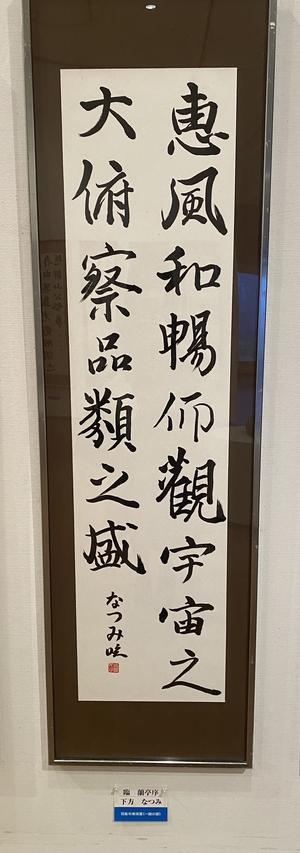 惠風和暢仰觀宇宙之
大俯察品類之盛
なつみ臨
臨 蘭亭序
下方 なつみ